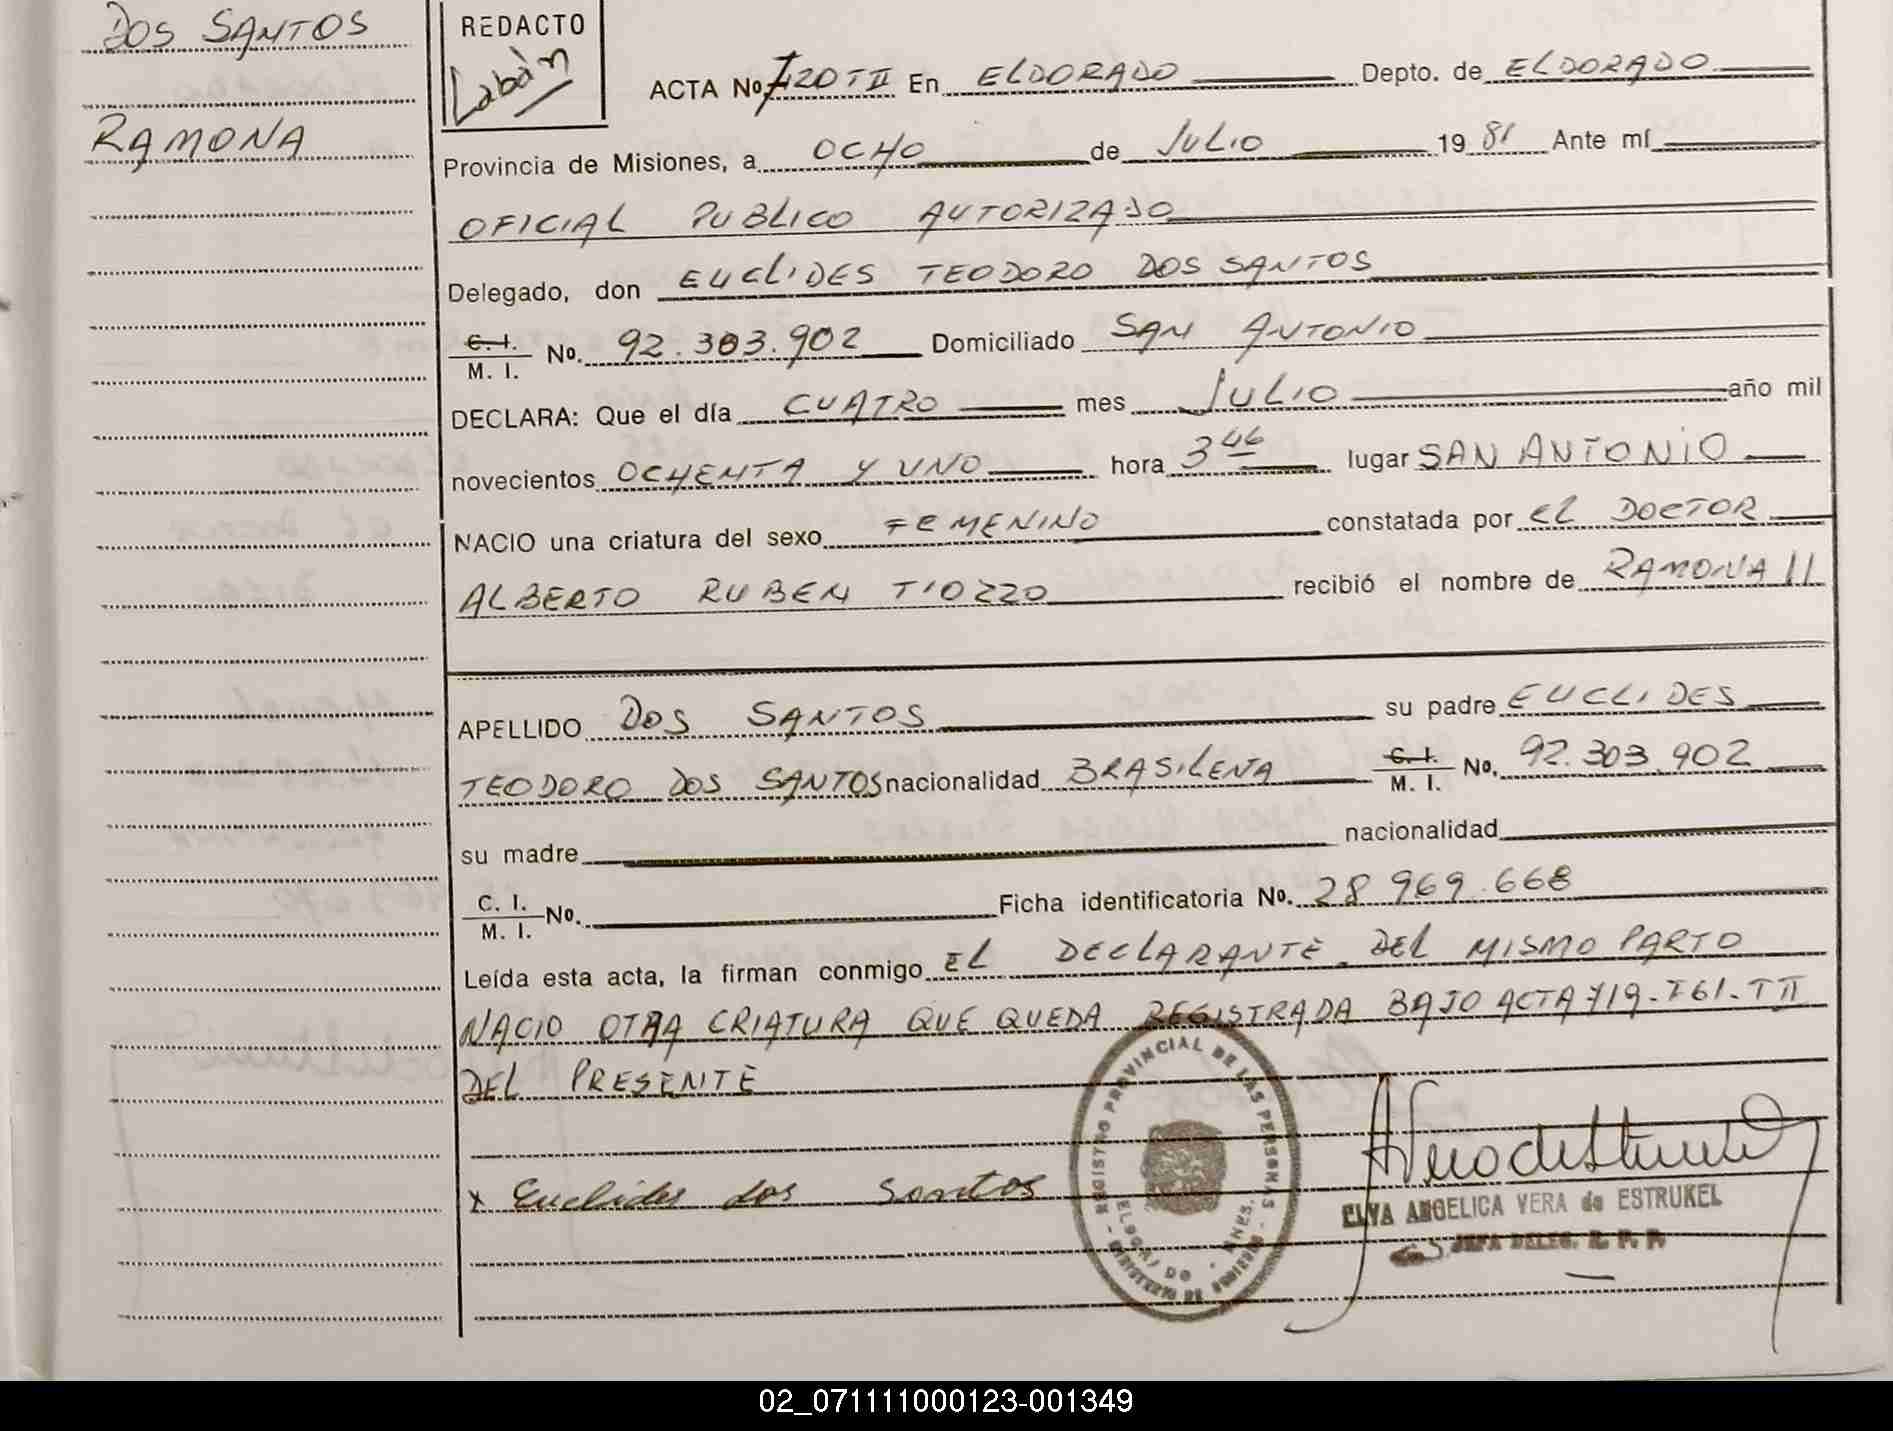 DOS SANTOS
RAMONA
REDACTO
Labán
ACTA No. 720 T II En ELDORADO Depto. de ELDORADO
Provincia de Misiones, a OCHO de JULIO 1981 Ante mí
OFICIAL PUBLICO AUTORIZADO
Delegado, don EUCLIDES TEODORO DOS SANTOS
C. I. M. I. No. 92.303.902 Domiciliado SAN ANTONIO
DECLARA: Que el día CUATRO mes JULIO año mil
novecientos OCHENTA Y UNO hora 3 46 lugar SAN ANTONIO
NACIO una criatura del sexo FEMENINO constatada por EL DOCTOR
ALBERTO RUBEN TIOZZO recibió el nombre de RAMONA
APELLIDO DOS SANTOS su padre EUCLIDES
TEODORO DOS SANTOS nacionalidad BRASILENA C. I. M. I. No. 92.303.902
su madre nacionalidad
C. I. M. I. No. Ficha identificatoria No. 28.969.668
Leída esta acta, la firman conmigo EL DECLARANTE. DEL MISMO PARTO
NACIO OTRA CRIATURA QUE QUEDA REGISTRADA BAJO ACTA 719-F61-TII
DEL PRESENTE
x Euclides dos Santos
REGISTRO PROVINCIAL DE LAS PERSONAS
MINISTERIO DE GOBIERNO
ELDORADO MNES.
ELVA ANGELICA VERA de ESTRUKEL
JEFA DELEG. R. P. P.
02_071111000123-001349